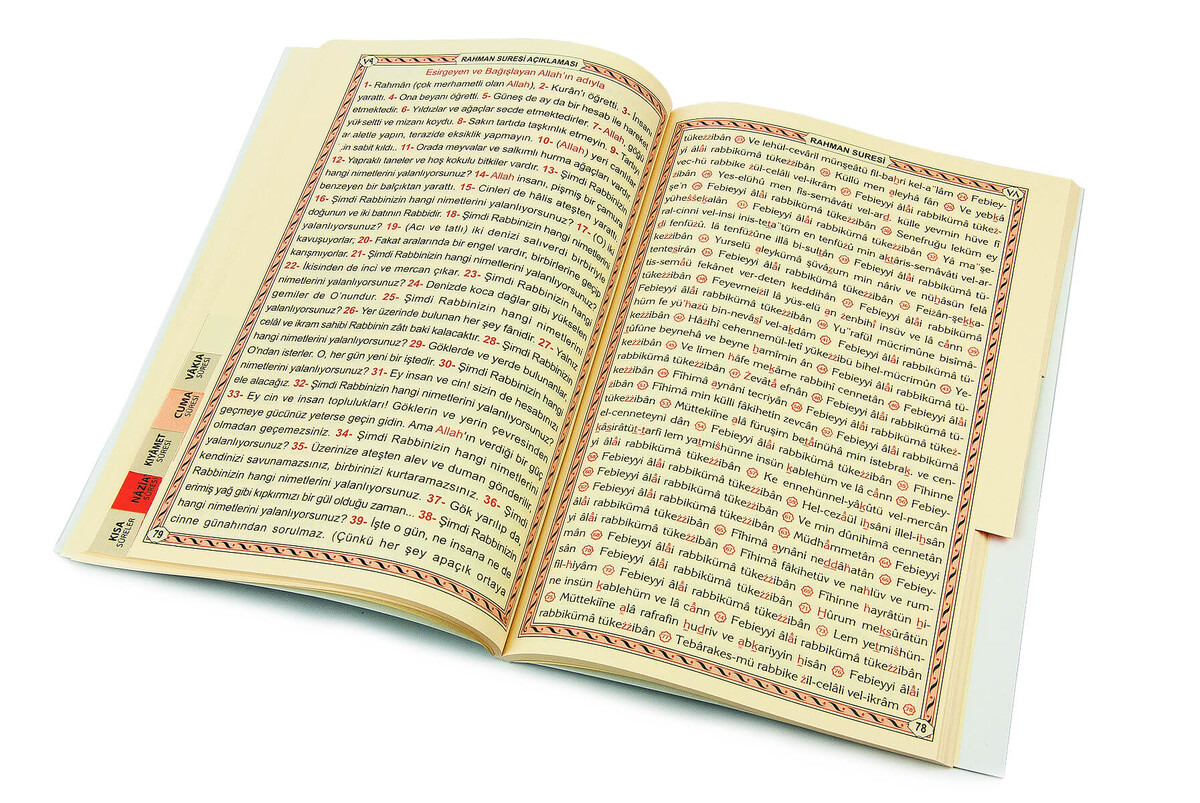 ٧٨
RAHMAN SURESİ AÇIKLAMASI
Esirgeyen ve Bağışlayan Allah'ın adıyla
1- Rahmân (çok merhametli olan Allah), 2- Kurân'ı öğretti. 3- İnsanı
yarattı. 4- Ona beyanı öğretti. 5- Güneş de ay da bir hesab ile hareket
etmektedir. 6- Yıldızlar ve ağaçlar secde etmektedirler. 7- Allah, göğü
yükseltti ve mizanı koydu. 8- Sakın tartıda taşkınlık etmeyin. 9- Tartıyı
ar aletle yapın, terazide eksiklik yapmayın. 10- (Allah) yeri canlılar
için sabit kıldı.. 11- Orada meyvalar ve salkımlı hurma ağaçları vardır.
12- Yapraklı taneler ve hoş kokulu bitkiler vardır. 13- Şimdi Rabbinizin
hangi nimetlerini yalanlıyorsunuz? 14- Allah insanı, pişmiş bir çamura
benzeyen bir balçıktan yarattı. 15- Cinleri de hâlis ateşten yarattı.
16- Şimdi Rabbinizin hangi nimetlerini yalanlıyorsunuz? 17- (O) iki
doğunun ve iki batının Rabbidir. 18- Şimdi Rabbinizin hangi nimetlerini
yalanlıyorsunuz? 19- (Acı ve tatlı) iki denizi salıverdi birbiriyle
kavuşuyorlar; 20- Fakat aralarında bir engel vardır, birbirlerine geçip
karışmıyorlar. 21- Şimdi Rabbinizin hangi nimetlerini yalanlıyorsunuz?
22- İkisinden de inci ve mercan çıkar. 23- Şimdi Rabbinizin hangi
nimetlerini yalanlıyorsunuz? 24- Denizde koca dağlar gibi yükselen
gemiler de O'nundur. 25- Şimdi Rabbinizin hangi nimetlerini
yalanlıyorsunuz? 26- Yer üzerinde bulunan her şey fânidir. 27- Yalnız
celâl ve ikram sahibi Rabbinin zâtı baki kalacaktır. 28- Şimdi Rabbinizin
hangi nimetlerini yalanlıyorsunuz? 29- Göklerde ve yerde bulunanlar,
O'ndan isterler. O, her gün yeni bir iştedir. 30- Şimdi Rabbinizin hangi
nimetlerini yalanlıyorsunuz? 31- Ey insan ve cin! sizin de hesabınızı
ele alacağız. 32- Şimdi Rabbinizin hangi nimetlerini yalanlıyorsunuz?
33- Ey cin ve insan toplulukları! Göklerin ve yerin çevresinden
geçmeye gücünüz yeterse geçin gidin. Ama Allah'ın verdiği bir güç
olmadan geçemezsiniz. 34- Şimdi Rabbinizin hangi nimetlerini
yalanlıyorsunuz? 35- Üzerinize ateşten alev ve duman gönderilir,
kendinizi savunamazsınız, birbirinizi kurtaramazsınız. 36- Şimdi
Rabbinizin hangi nimetlerini yalanlıyorsunuz. 37- Gök yarılıp da
erimiş yağ gibi kıpkırmızı bir gül olduğu zaman... 38- Şimdi Rabbinizin
hangi nimetlerini yalanlıyorsunuz? 39- İşte o gün, ne insana ne de
cinne günahından sorulmaz. (Çünkü her şey apaçık ortaya
78
VÂKIA SÛRESİ
CUMA SÛRESİ
KIYÂMET SÛRESİ
NÂZİA SÛRESİ
KISA SÛRELER
RAHMAN SURESİ
٧٨
tükeẕẕibân 23 Ve lehül-cevâril münşeâtü fil-baḥri kel-a'lâm 24 Febiey-
yi âlâi rabbikümâ tükeẕẕibân 25 Küllü men aleyhâ fân 26 Ve yebḳâ
vec-hü rabbike ẕül-celâli vel-ikrâm 27 Febieyyi âlâi rabbikümâ tükeẕẕi-
bân 28 Yes-elühû men fis-semâvâti vel-arḍ. Külle yevmin hüve fî
şe'n 29 Febieyyi âlâi rabbikümâ tükeẕẕibân 30 Senefruğu leküm ey
yüheŝŝeḳalân 31 Febieyyi âlâi rabbikümâ tükeẕẕibân 32 Yâ ma'şe-
ral-cinni vel-insi inis-teṭa'tüm en tenfüẕû min aḳṭâris-semâvâti vel-ar-
ḍi fenfüẕû. lâ tenfüẕûne illâ bi-sulṭân 33 Febieyyi âlâi rabbikümâ tü-
keẕẕibân 34 Yurselü aleykümâ şüvâẓum min nâriv ve nüḥâsün felâ
tentesirân 35 Febieyyi âlâi rabbikümâ tükeẕẕibân 36 Feizân-şeḳḳa-
tis-semâü fekânet ver-deten keddihân 37 Febieyyi âlâi rabbikümâ
tükeẕẕibân 38 Feyevmeiẕil lâ yüs-elü an ẕenbihî insüv ve lâ cânn 39
Febieyyi âlâi rabbikümâ tükeẕẕibân 40 Yu'raful mücrimûne bisîmâ-
hüm fe yü'ḫaẕü bin-nevâṣî vel-aḳdâm 41 Febieyyi âlâi rabbikümâ tü-
keẕẕibân 42 Hâẕihî cehennemül-letî yükeẕẕibü bihel-mücrimûn 43 Ye-
ṭûfûne beynehâ ve beyne ḥamîmin ân 44 Febieyyi âlâi rabbikümâ tü-
keẕẕibân 45 Ve limen ḫâfe meḳâme rabbihî cennetân 46 Febieyyi âlâi
rabbikümâ tükeẕẕibân 47 Ẕevâtâ efnân 48 Febieyyi âlâi rabbikümâ tükeẕẕi-
bân 49 Fîhimâ aynâni tecriyân 50 Febieyyi âlâi rabbikümâ tükeẕẕi-
bân 51 Fîhimâ min külli fâkihetin zevcân 52 Febieyyi âlâi rabbikümâ tükeẕ-
ẕibân 53 Müttekiîne alâ furuşim beṭâinühâ min istebraḳ. ve cen-
el-cenneteyni dân 54 Febieyyi âlâi rabbikümâ tükeẕẕibân 55 Fîhinne
ḳâṣirâtüṭ-ṭarfi lem yaṭmiŝhünne insün ḳablehüm ve lâ cânn 56 Febieyyi
yi âlâi rabbikümâ tükeẕẕibân 57 Ke ennehünnel-yâḳûtü vel-mercân
58 Febieyyi âlâi rabbikümâ tükeẕẕibân 59 Hel-cezâül iḥsâni illel-iḥsân
60 Febieyyi âlâi rabbikümâ tükeẕẕibân 61 Ve min dûnihimâ cennetân
62 Febieyyi âlâi rabbikümâ tükeẕẕibân 63 Müdhâmmetân 64 Febieyyi
yi âlâi rabbikümâ tükeẕẕibân 65 Fîhimâ aynâni neḍḍâḫatân 66 Febiey-
yi âlâi rabbikümâ tükeẕẕibân 67 Fîhimâ fâkihetüv ve naḫlüv ve rum-
mân 68 Febieyyi âlâi rabbikümâ tükeẕẕibân 69 Fîhinne ḫayrâtün ḥi-
sân 70 Febieyyi âlâi rabbikümâ tükeẕẕibân 71 Ḥûrum meḳṣûrâtün
fil-ḫiyâm 72 Febieyyi âlâi rabbikümâ tükeẕẕibân 73 Lem yeṭmiŝhün-
ne insün ḳablehüm ve lâ cânn 74 Febieyyi âlâi rabbikümâ tükeẕẕibân
75 Müttekiîne alâ rafrafin ḫuḍriv ve abḳariyyin ḥisân 76 Febieyyi âlâi
rabbikümâ tükeẕẕibân 77 Tebârakes-mü rabbike ẕil-celâli vel-ikrâm 78
78